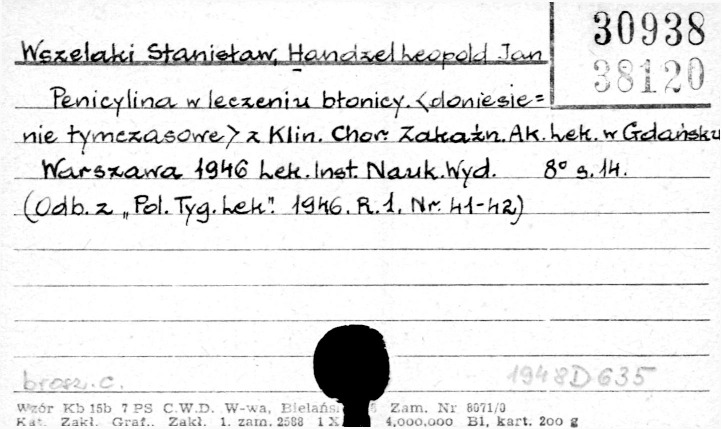 30938
38120
Wszelaki Stanisław, Handzel Leopold Jan
Penicylina w leczeniu błonicy. <doniesie=
nie tymczasowe> z Klin. Chor. Zakaźn. Ak. Lek. w Gdańsku
Warszawa 1946 Lek. Inst. Nauk. Wyd. 8° s. 14.
(Odb. z „Pol. Tyg. Lek". 1946. R. 1. Nr. 41-42)
brosz. c. 1948 D 635
Wzór Kb 15b 7 PS C.W.D. W-wa, Zam. Nr 8071/0
Kat. Zakł. Graf., Zakł. 1. zam. 2588 4,000,000 B1, kart. 200 g